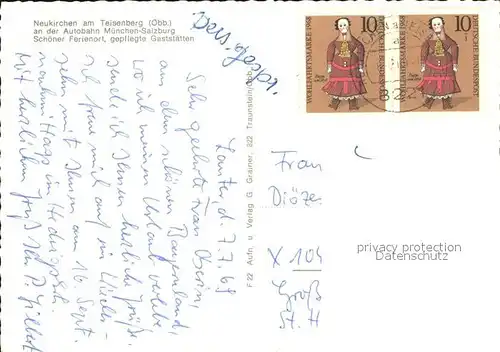 Neukirchen am Teisenberg (Obb.)
an der Autobahn München-Salzburg
Schöner Ferienort, gepflegte Gaststätten
Lauter, d. 7.7.69
Sehr geehrte Frau Oberin,
aus dem schönen Bayernland,
wo ich meinen Urlaub verlebe
sende ich Ihnen herzliche Grüße.
freue mich auf ein
sehn mit Ihnen am 16 Sept.
nachmittags im
Mit herzlichem Gruß Ihr P. Gilbert
F 22 Aufn. u. Verlag G. Grainer, 822 Traunstein/Obb.
WOHLFAHRTSMARKE 1968
10
DEUTSCHE BUNDESPOST
WOHLFAHRTSMARKE 1968
10
DEUTSCHE BUNDESPOST
Frau
Diöze
X 104
Groß
St. H
privacy protection
Datenschutz